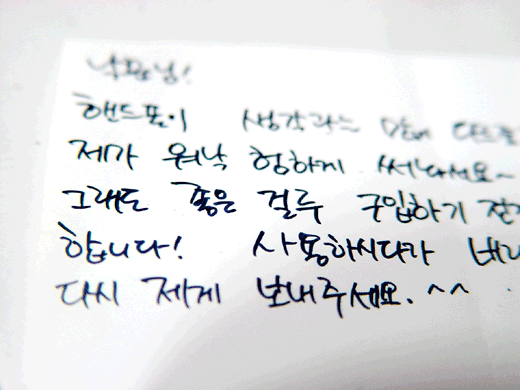 핸드폰이 생각과는
제가 워낙 험하게 써나서요~
그래도 좋은 걸루 구입하기
합니다! 사용하시다가
다시 제게 보내주세요. ^^